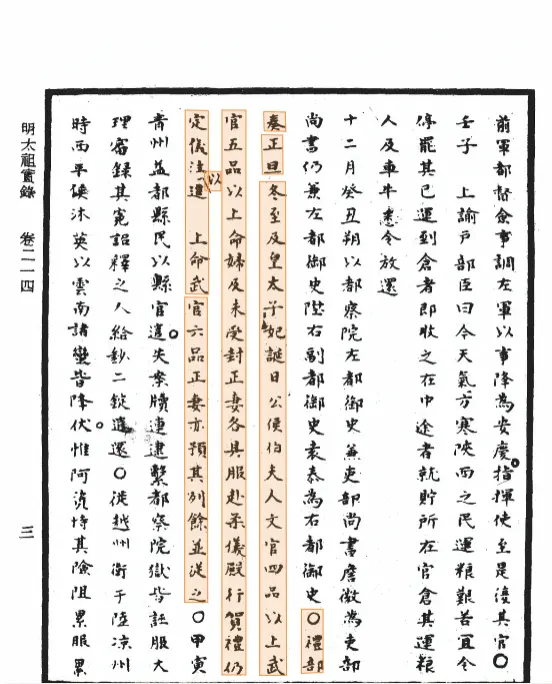 前軍都督僉事調左軍以事降為安慶指揮使至是復其官○
壬子　上諭戶部臣曰今天氣方寒陝西之民運粮艱苦宜令
停罷其已運到倉者即收之在中途者就貯所在官倉其運粮
人及車牛悉令放還
十二月癸丑朔以都察院左都御史兼吏部尚書詹徽為吏部
尚書仍兼左都御史陞右副都御史袁泰為右都御史○禮部
奏正旦冬至及皇太子妃誕日公侯伯夫人文官四品以上武
官五品以上命婦及未受封正妻各具服赴柔儀殿行賀禮仍
定儀注進　上命武官六品正妻亦預其列餘並從之○甲寅
以
青州益都縣民以縣官遺失案牘連逮繫都察院獄皆誣服大
理審録其寃詔釋之人給鈔二錠遣還○徙越州衛于陸凉州
時西平侯沐英以雲南諸蠻皆降伏惟阿資恃其險阻累服累
明太祖實錄　卷二一四　三